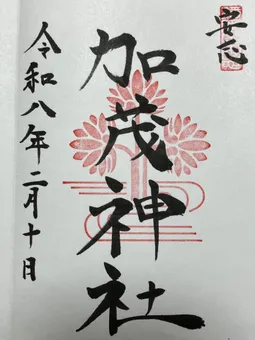 安芯
加茂神社
令和八年二月十日